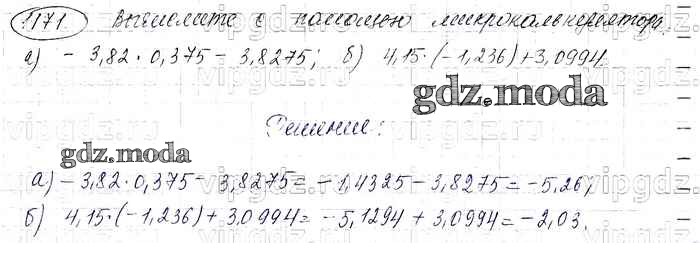 1171 Вычислите с помощью микрокалькулятора.
а) - 3,82 · 0,375 - 3,8275; б) 4,15 · (-1,236) + 3,0994.
gdz.moda
Решение:
gdz.moda
а) - 3,82 · 0,375 - 3,8275 = - 1,4325 - 3,8275 = -5,26;
б) 4,15 · (-1,236) + 3,0994 = -5,1294 + 3,0994 = -2,03.